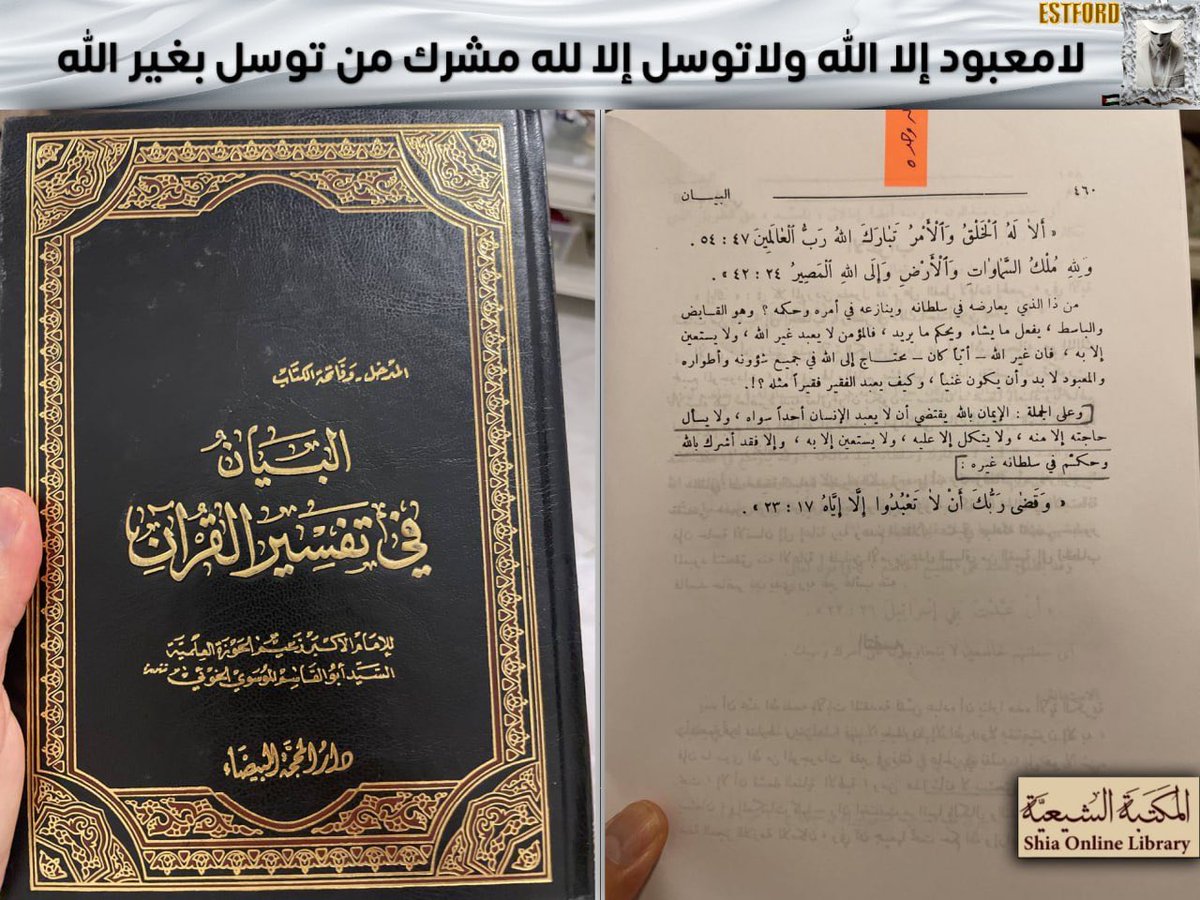 ESTFORD
لامعبود إلا الله ولاتوسل إلا لله مشرك من توسل بغير الله
المدخل - وفاتحة الكتاب
البيان
في تفسير القرآن
للإمام الأكبر زعيم الحوزة العلمية
السيد أبو القاسم الموسوي الخوئي
دار المحجة البيضاء
٤٦٠ البيــان
« أَلاَ لَهُ الْخَلْقُ وَٱلْأَمْرُ تَبَارَكَ اللهُ رَبُّ الْعَالَمِينَ ٤٧ : ٥٤ .
وَلِلهِ مُلْكُ السَّمٰوَاتِ وَالْأَرْضِ وَإِلَى اللهِ الْمَصِيرُ ٢٤ : ٤٢ » .
من ذا الذي يعارضه في سلطانه وينازعه في أمره وحكمه ؟ وهو القابض
والباسط ، يفعل ما يشاء ويحكم ما يريد ، فالمؤمن لا يعبد غير الله ، ولا يستعين
إلا به ، فان غير الله – أياً كان – محتاج إلى الله في جميع شؤونه وأطواره
والمعبود لا بد وأن يكون غنياً ، وكيف يعبد الفقير فقيراً مثله ؟!.
وعلى الجملة : الإيمان بالله يقتضي أن لا يعبد الإنسان أحداً سواه ، ولا يسأل
حاجته إلا منه ، ولا يتكل إلا عليه ، ولا يستعين إلا به ، وإلا فقد أشرك بالله
وحكّم في سلطانه غيره :
« وَقَضٰى رَبُّكَ أَنْ لاَ تَعْبُدُوا إِلَّا إِيَّاهُ ١٧ : ٢٣ » .
المكتبة الشيعية
Shia Online Library